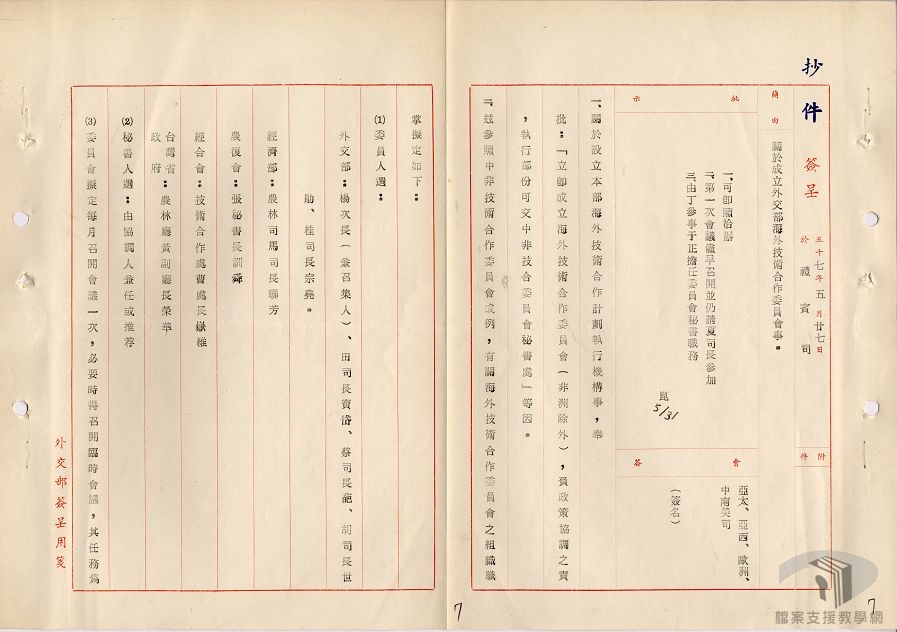 抄件
簽呈 五十七年五月廿七日
於禮賓司
附件
簡由 關於成立外交部海外技術合作委員會事。
批示
一、可即照洽辦
二、第一次會議儘早召開並仍請夏司長參加
三、由丁參事于正擔任委員會秘書職務
崑 5/31
會簽
亞太、亞西、歐洲、
中南美司
(簽名)
一、關於設立本部海外技術合作計劃執行機構事,奉
批:「立即成立海外技術合作委員會(非洲除外),負政策協調之責
,執行部份可交中非技合委員會秘書處」等因。
二、茲參照中非技術合作委員會成例,有關海外技術合作委員會之組織職
7
掌擬定如下:
(1)委員人選:
外交部:楊次長(兼召集人)、田司長寶岱、蔡司長維屏、胡司長世
勛、桂司長宗堯。
經濟部:農林司馬司長聯芳
農復會:張秘書長訓舜
經合會:技術合作處費處長嶽維
台灣省政府:農林廳黃副廳長榮華
(2)秘書人選:由協調人兼任或推荐
(3)委員會擬定每月召開會議一次,必要時得召開臨時會議,其任務為
外交部簽呈用箋
7
檔案支援教學網